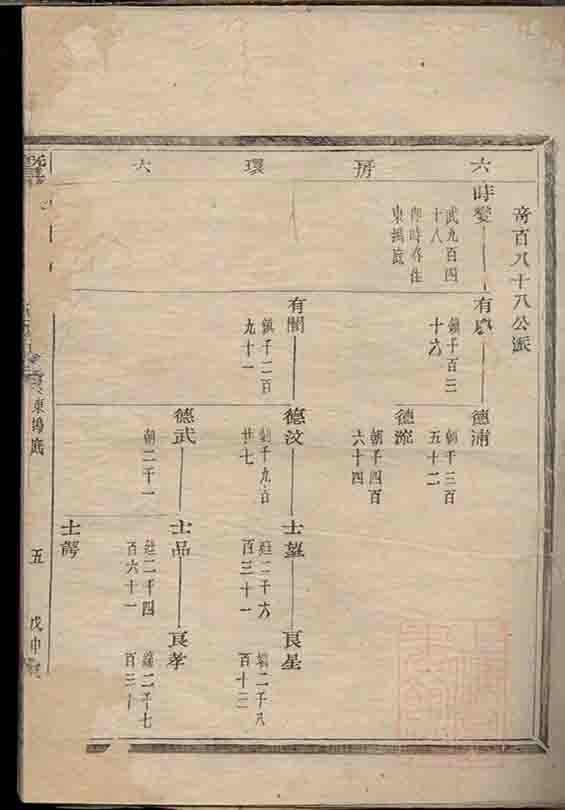 奇百八十八公派
六房環六
時變
武九百四
十八
東塢底
有
鎮千百三
十六
德浦
朝千三百
五十二
德流
朝千四百
六十四
有開
鎮千二百
九十一
德汶
朝千九百
廿七
士望
廷二千六
百三十一
良星
二千八
百十三
德武
朝二千一
士品
廷二千四
百六十一
良孝
二千七
百三十
士諤
東塢底
五
戊申